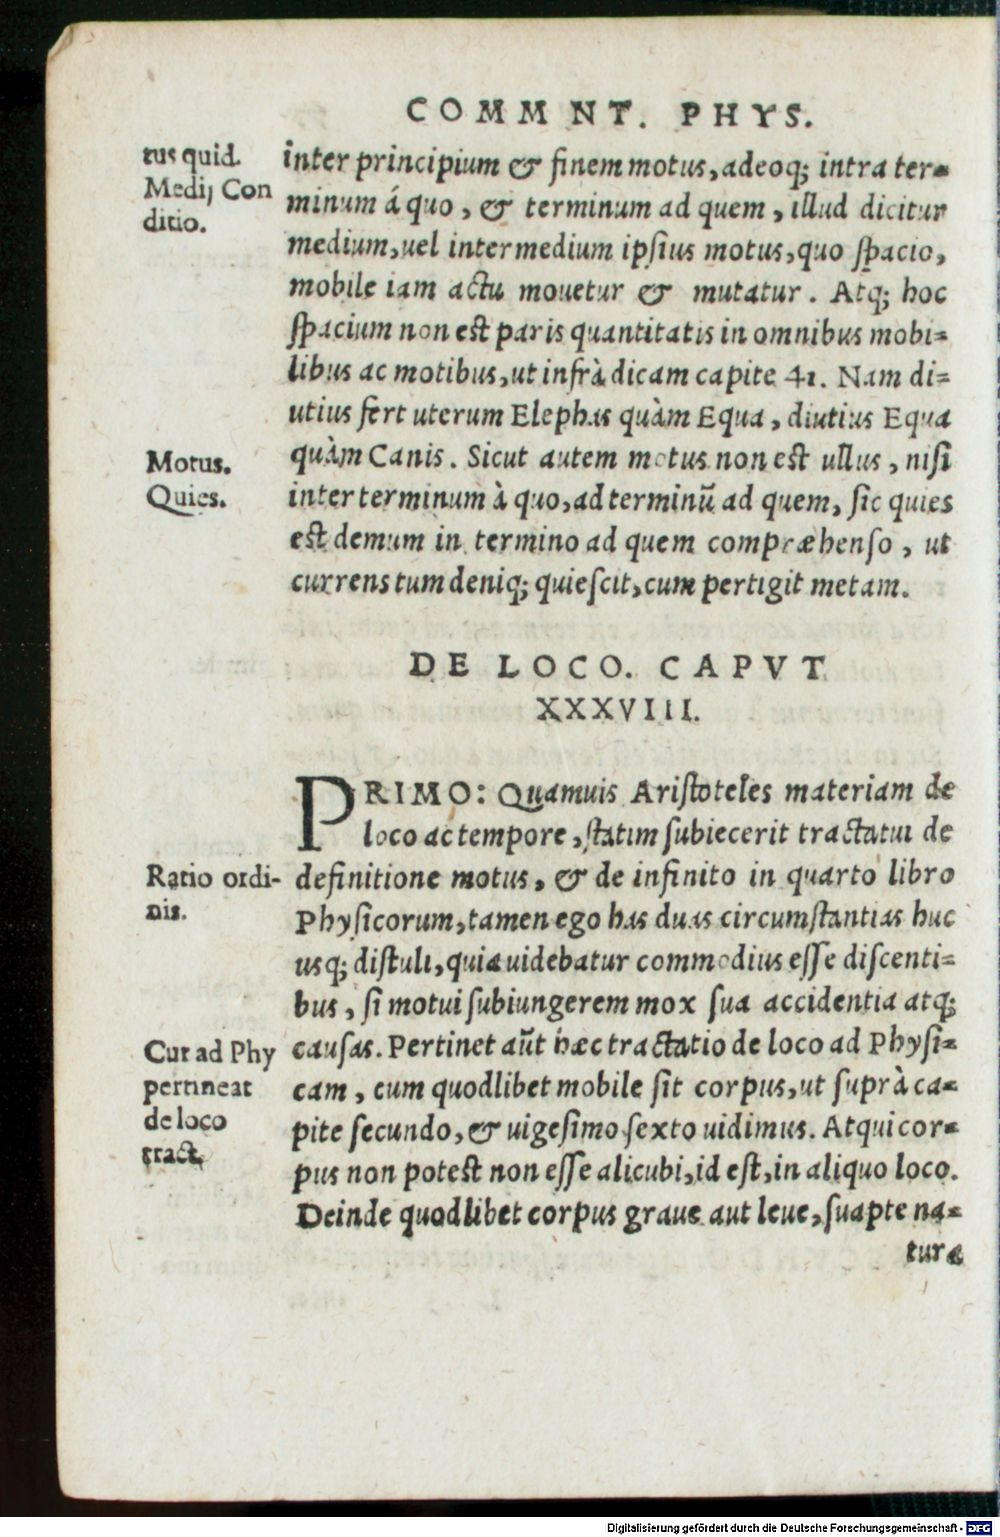 COMM NT. PHYS.
tus quid.
Medij Con
ditio.
inter principium & finem motus, adeoq; intra ter-
minum á quo, & terminum ad quem, illud dicitur
medium, uel intermedium ipſius motus, quo ſpacio,
mobile iam actu mouetur & mutatur. Atq; hoc
ſpacium non est paris quantitatis in omnibus mobi-
libus ac motibus, ut infrà dicam capite 41. Nam di-
utius fert uterum Elephas quàm Equa, diutius Equa
Motus.
Quies.
quàm Canis. Sicut autem motus non est ullus, niſi
inter terminum à quo, ad terminū ad quem, ſic quies
est demum in termino ad quem compræhenſo, ut
currens tum deniq; quieſcit, cum pertigit metam.
DE LOCO. CAPVT
XXXVIII.
PRIMO: Quamuis Ariſtoteles materiam de
loco ac tempore, ſtatim ſubiecerit tractatui de
Ratio ordi-
nis.
definitione motus, & de infinito in quarto libro
Phyſicorum, tamen ego has duas circumſtantias huc
uſq; diſtuli, quia uidebatur commodius eſſe diſcenti-
bus, ſi motui ſubiungerem mox ſua accidentia atq;
Cur ad Phy
pertineat
de loco
tract.
cauſas. Pertinet aūt hæc tractatio de loco ad Phyſi-
cam, cum quodlibet mobile ſit corpus, ut ſuprà ca-
pite ſecundo, & uigeſimo ſexto uidimus. Atqui cor-
pus non potest non eſſe alicubi, id eſt, in aliquo loco.
Deinde quodlibet corpus graue aut leue, ſuapte na-
tura
Digitalisierung gefördert durch die Deutsche Forschungsgemeinschaft - DFG